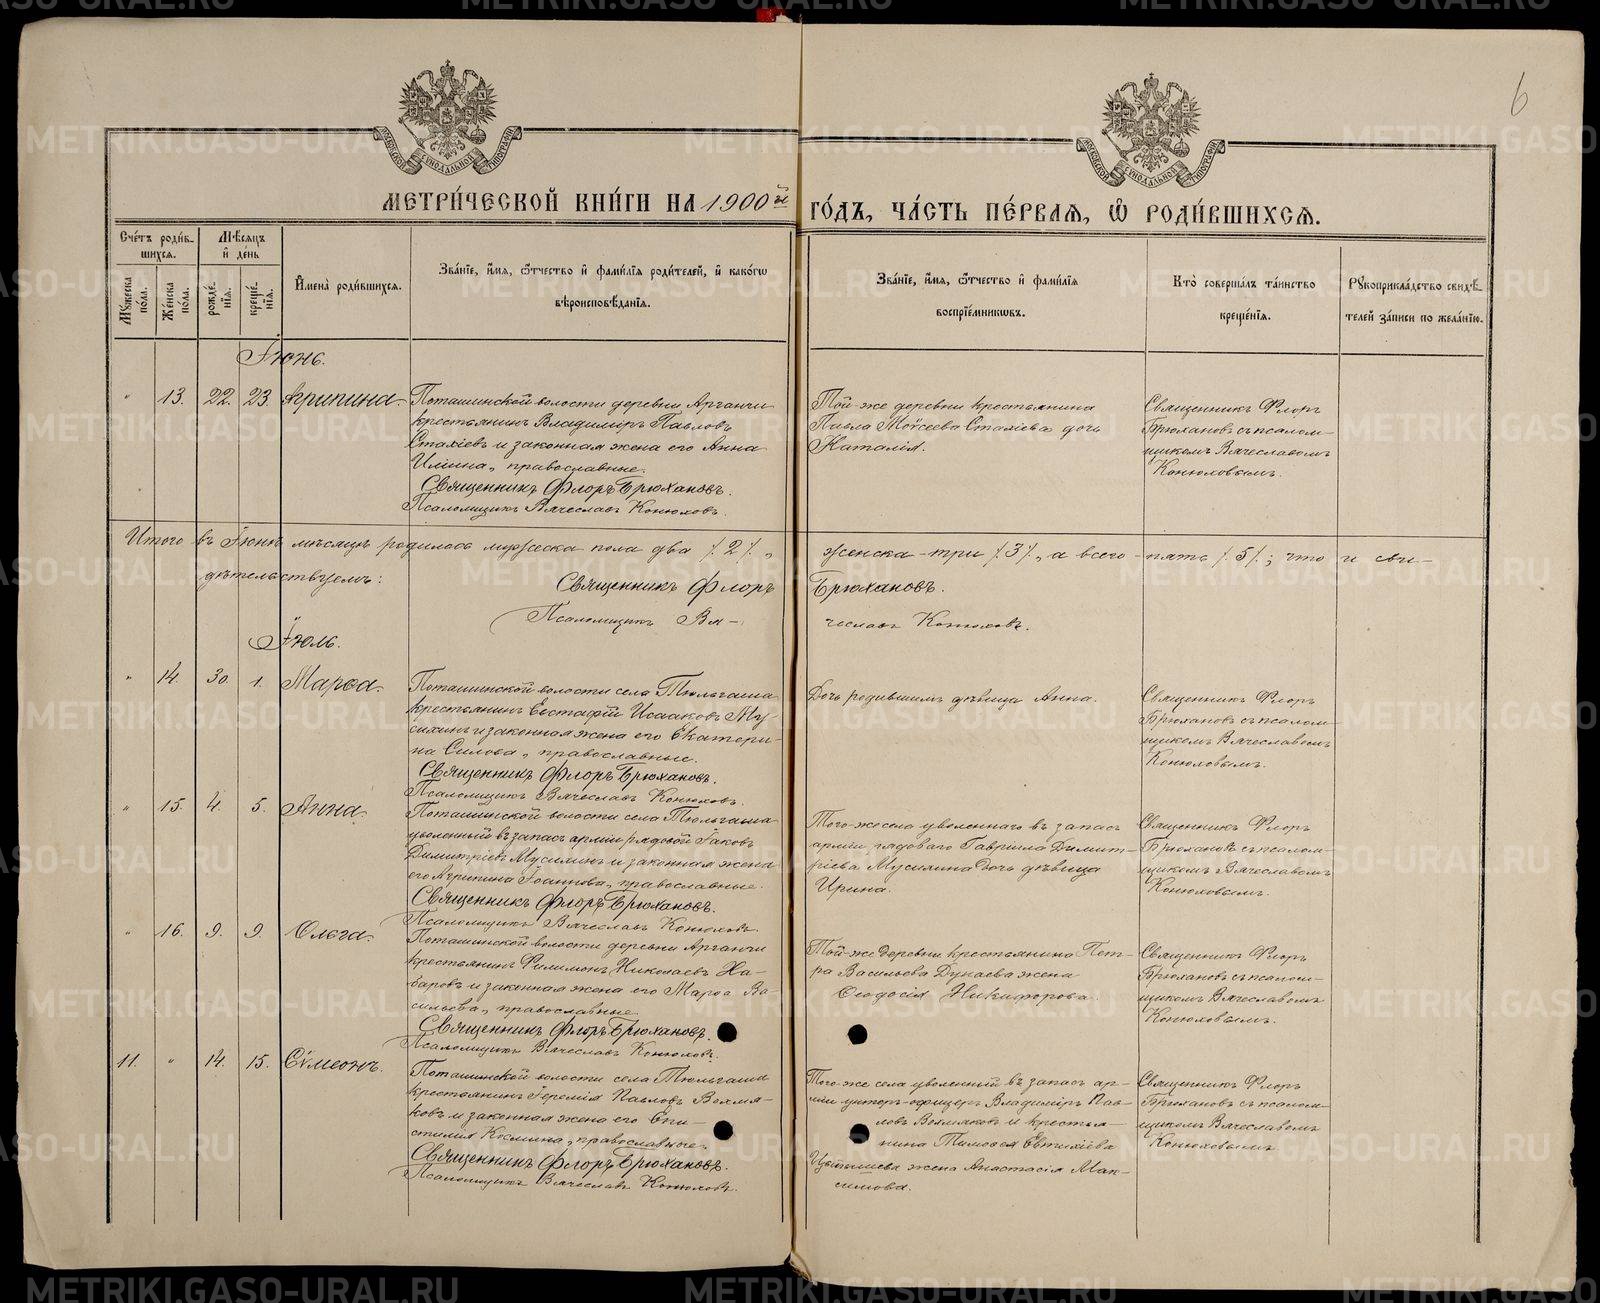 6
МОСКОВСКОЙ СѴНОДАЛЬНОЙ ТИПОГРАФІИ
МОСКОВСКОЙ СѴНОДАЛЬНОЙ ТИПОГРАФІИ
МЕТРИ́ЧЕСКОЙ КНИ́ГИ НА 1900й ГО́ДЪ, ЧА́СТЬ ПЕ́РВАЯ, Ѡ РОДИ́ВШИХСѦ.
Сче́тъ роди́в-
шихсѧ.
Мꙋжеска
пола.
Же́нска
по́ла.
Мѣ́сѧцъ
и҆ де́нь
рожде́-
нїѧ.
креще́-
нїѧ.
И҆мена̀ роди́вшихсѧ.
Зва́нїе, и҆́мѧ, ѻ҆́тчество и҆ фами́лїѧ роди́телей, и҆ како́гѡ
вѣроисповѣ́данїѧ.
Зва́нїе, и҆́мѧ, ѻ҆́тчество и҆ фами́лїѧ
воспрїе́мникѡвъ.
Кто̀ соверша́лъ та́инство
креще́нїѧ.
Рꙋкоприкла́дство свидѣ́-
телей за́писи по жела́нїю.
Іюнь.
" 13. 22. 23. Агрипина.
Поташинской волости деревни Арганчи
крестьянинъ Владиміръ Павловъ
Стахіевъ и законная жена его Анна
Илiина, православные.
Священникъ Флоръ Брюхановъ.
Псаломщикъ Вячеславъ Конюховъ.
Той-же деревни крестьянина
Павла Моѵсеева Стахіева дочь
Наталія.
Священникъ Флоръ
Брюхановъ съ псалом-
щикомъ Вячеславомъ
Конюховымъ.
Итого въ Іюнѣ мѣсяцѣ родилось мужеска пола два /2/, женска - три /3/, а всего - пять /5/; что и сви-
дѣтельствуемъ:
Священникъ Флоръ Брюхановъ.
Псаломщикъ Вя- чеславъ Конюховъ.
Іюль.
" 14. 30. 1. Марѳа.
Поташинской волости села Тюльгаша
крестьянинъ Евстафій Исааковъ Му-
сихинъ и законная жена его Екатери-
на Силова, православные.
Священникъ Флоръ Брюхановъ.
Псаломщикъ Вячеславъ Конюховъ.
Дочь родившимъ дѣвица Анна.
Священникъ Флоръ
Брюхановъ съ псалом-
щикомъ Вячеславомъ
Конюховымъ.
" 15. 4. 5. Анна.
Поташинской волости села Тюльгаша
уволенный въ запасъ арміи рядовой Іаковъ
Димитріевъ Мусихинъ и законная жена
его Агрипина Іоаннова, православные.
Священникъ Флоръ Брюхановъ.
Псаломщикъ Вячеславъ Конюховъ.
Того-же села уволеннаго въ запасъ
арміи рядоваго Гавріила Димит-
ріева Мусихина дочь дѣвица
Ирина.
Священникъ Флоръ
Брюхановъ съ псалом-
щикомъ Вячеславомъ
Конюховымъ.
" 16. 9. 9. Ольга.
Поташинской волости деревни Арганчи
крестьянинъ Филимонъ Николаевъ Ха-
баровъ и законная жена его Марѳа Ва-
сильева, православные.
Священникъ Флоръ Брюхановъ.
Псаломщикъ Вячеславъ Конюховъ.
Той-же деревни крестьянина Пет-
ра Васильева Дунаева жена
Ѳеодосія Никифорова.
Священникъ Флоръ
Брюхановъ съ псалом-
щикомъ Вячеславомъ
Конюховымъ.
11. " 14. 15. Сѵмеонъ.
Поташинской волости села Тюльгаша
крестьянинъ Іеремія Павловъ Вохмя-
ковъ и законная жена его Епи-
стилія Космина, православные.
Священникъ Флоръ Брюхановъ.
Псаломщикъ Вячеславъ Конюховъ.
Того-же села уволенный въ запасъ ар-
міи унтеръ-офицеръ Владиміръ Пав-
ловъ Вохмяковъ и крестья-
нина Тимоѳея Евтихіева
жена Анастасія Мак-
симова.
Священникъ Флоръ
Брюхановъ съ псалом-
щикомъ Вячеславомъ
Конюховымъ.
METRIKI.GASO-URAL.RU